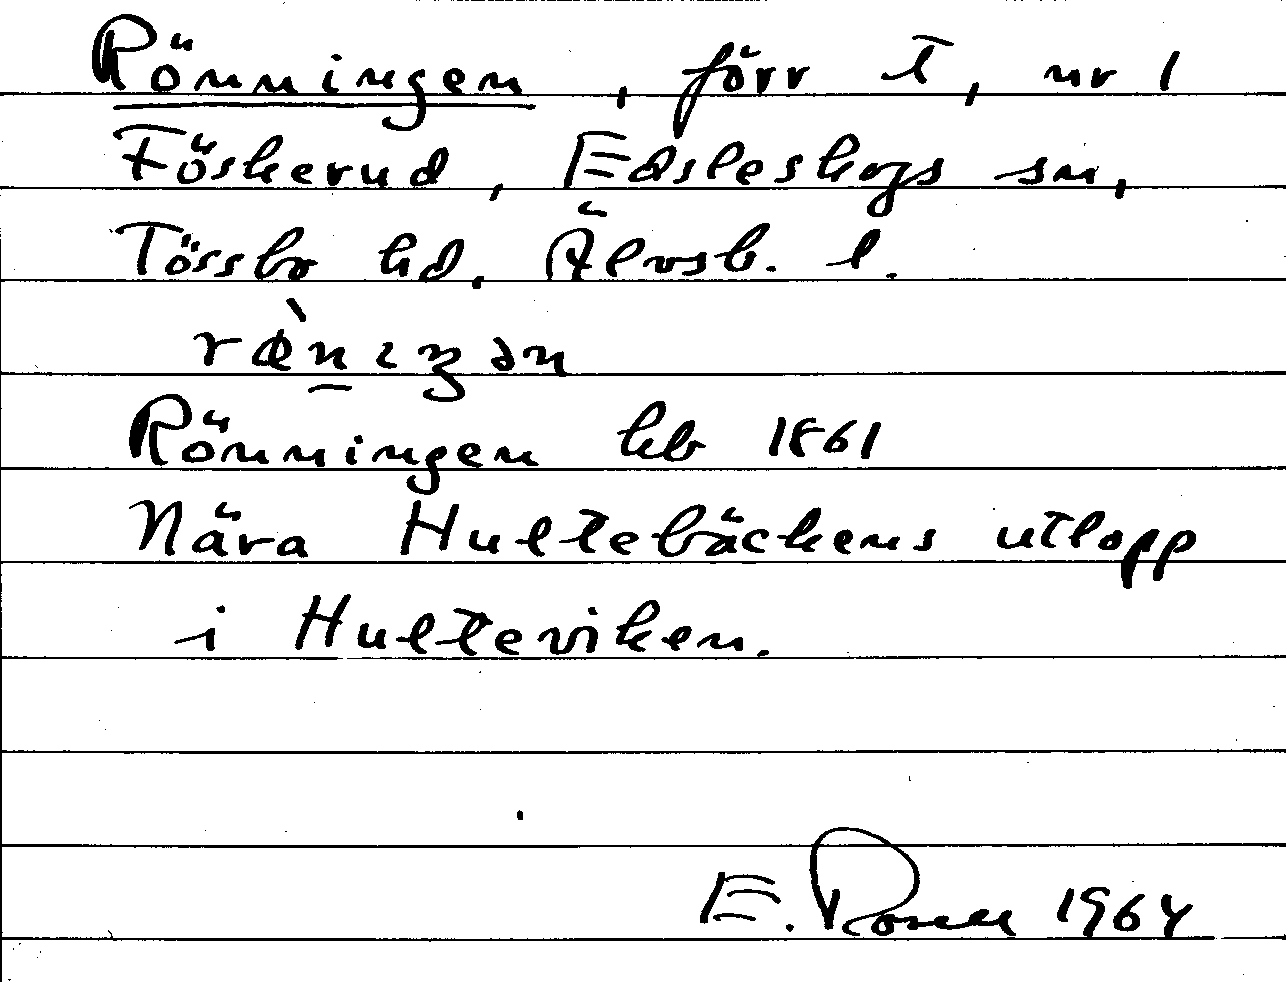 Rönningen, förr T, nr 1
Föskerud, Edsleskogs sn,
Tössbo hd. Älvsb. l.
Rönningen hb 1861
Nära Hultebäckens utlopp
i Hulteviken.
E. Rosell 1964